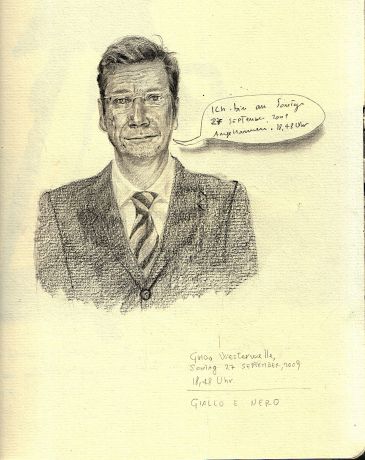 Ich bin am Sonntag
27 SEPTEMBER, 2009
Angekommen. 18,48 Uhr
Guido Westerwelle,
Sonntag 27 SEPTEMBER, 2009
18,48 Uhr
GIALLO E NERO